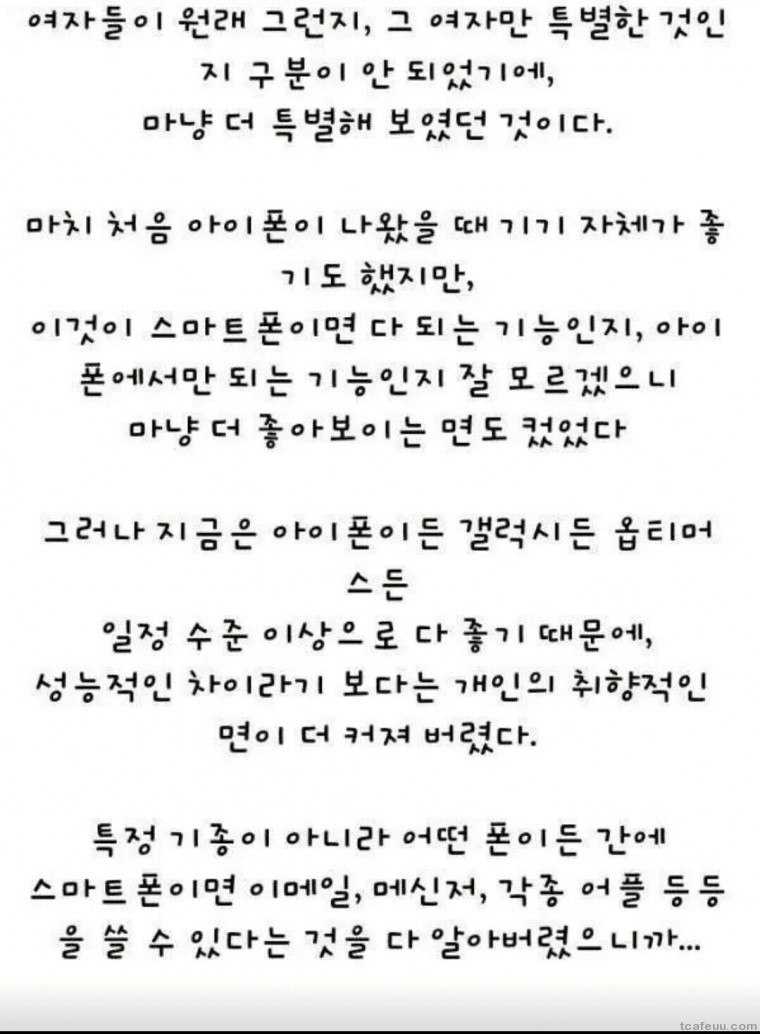 여자들이 원래 그런지, 그 여자만 특별한 것인
지 구분이 안 되었기에,
마냥 더 특별해 보였던 것이다.
마치 처음 아이폰이 나왔을 때 기기 자체가 좋
기도 했지만,
이것이 스마트폰이면 다 되는 기능인지, 아이
폰에서만 되는 기능인지 잘 모르겠으니
마냥 더 좋아보이는 면도 컸었다
그러나 지금은 아이폰이든 갤럭시든 옵티머
스든
일정 수준 이상으로 다 좋기 때문에,
성능적인 차이라기 보다는 개인의 취향적인
면이 더 커져 버렸다.
특정 기종이 아니라 어떤 폰이든 간에
스마트폰이면 이메일, 메신저, 각종 어플 등등
을 쓸 수 있다는 것을 다 알아버렸으니까...
tcafeuu.com